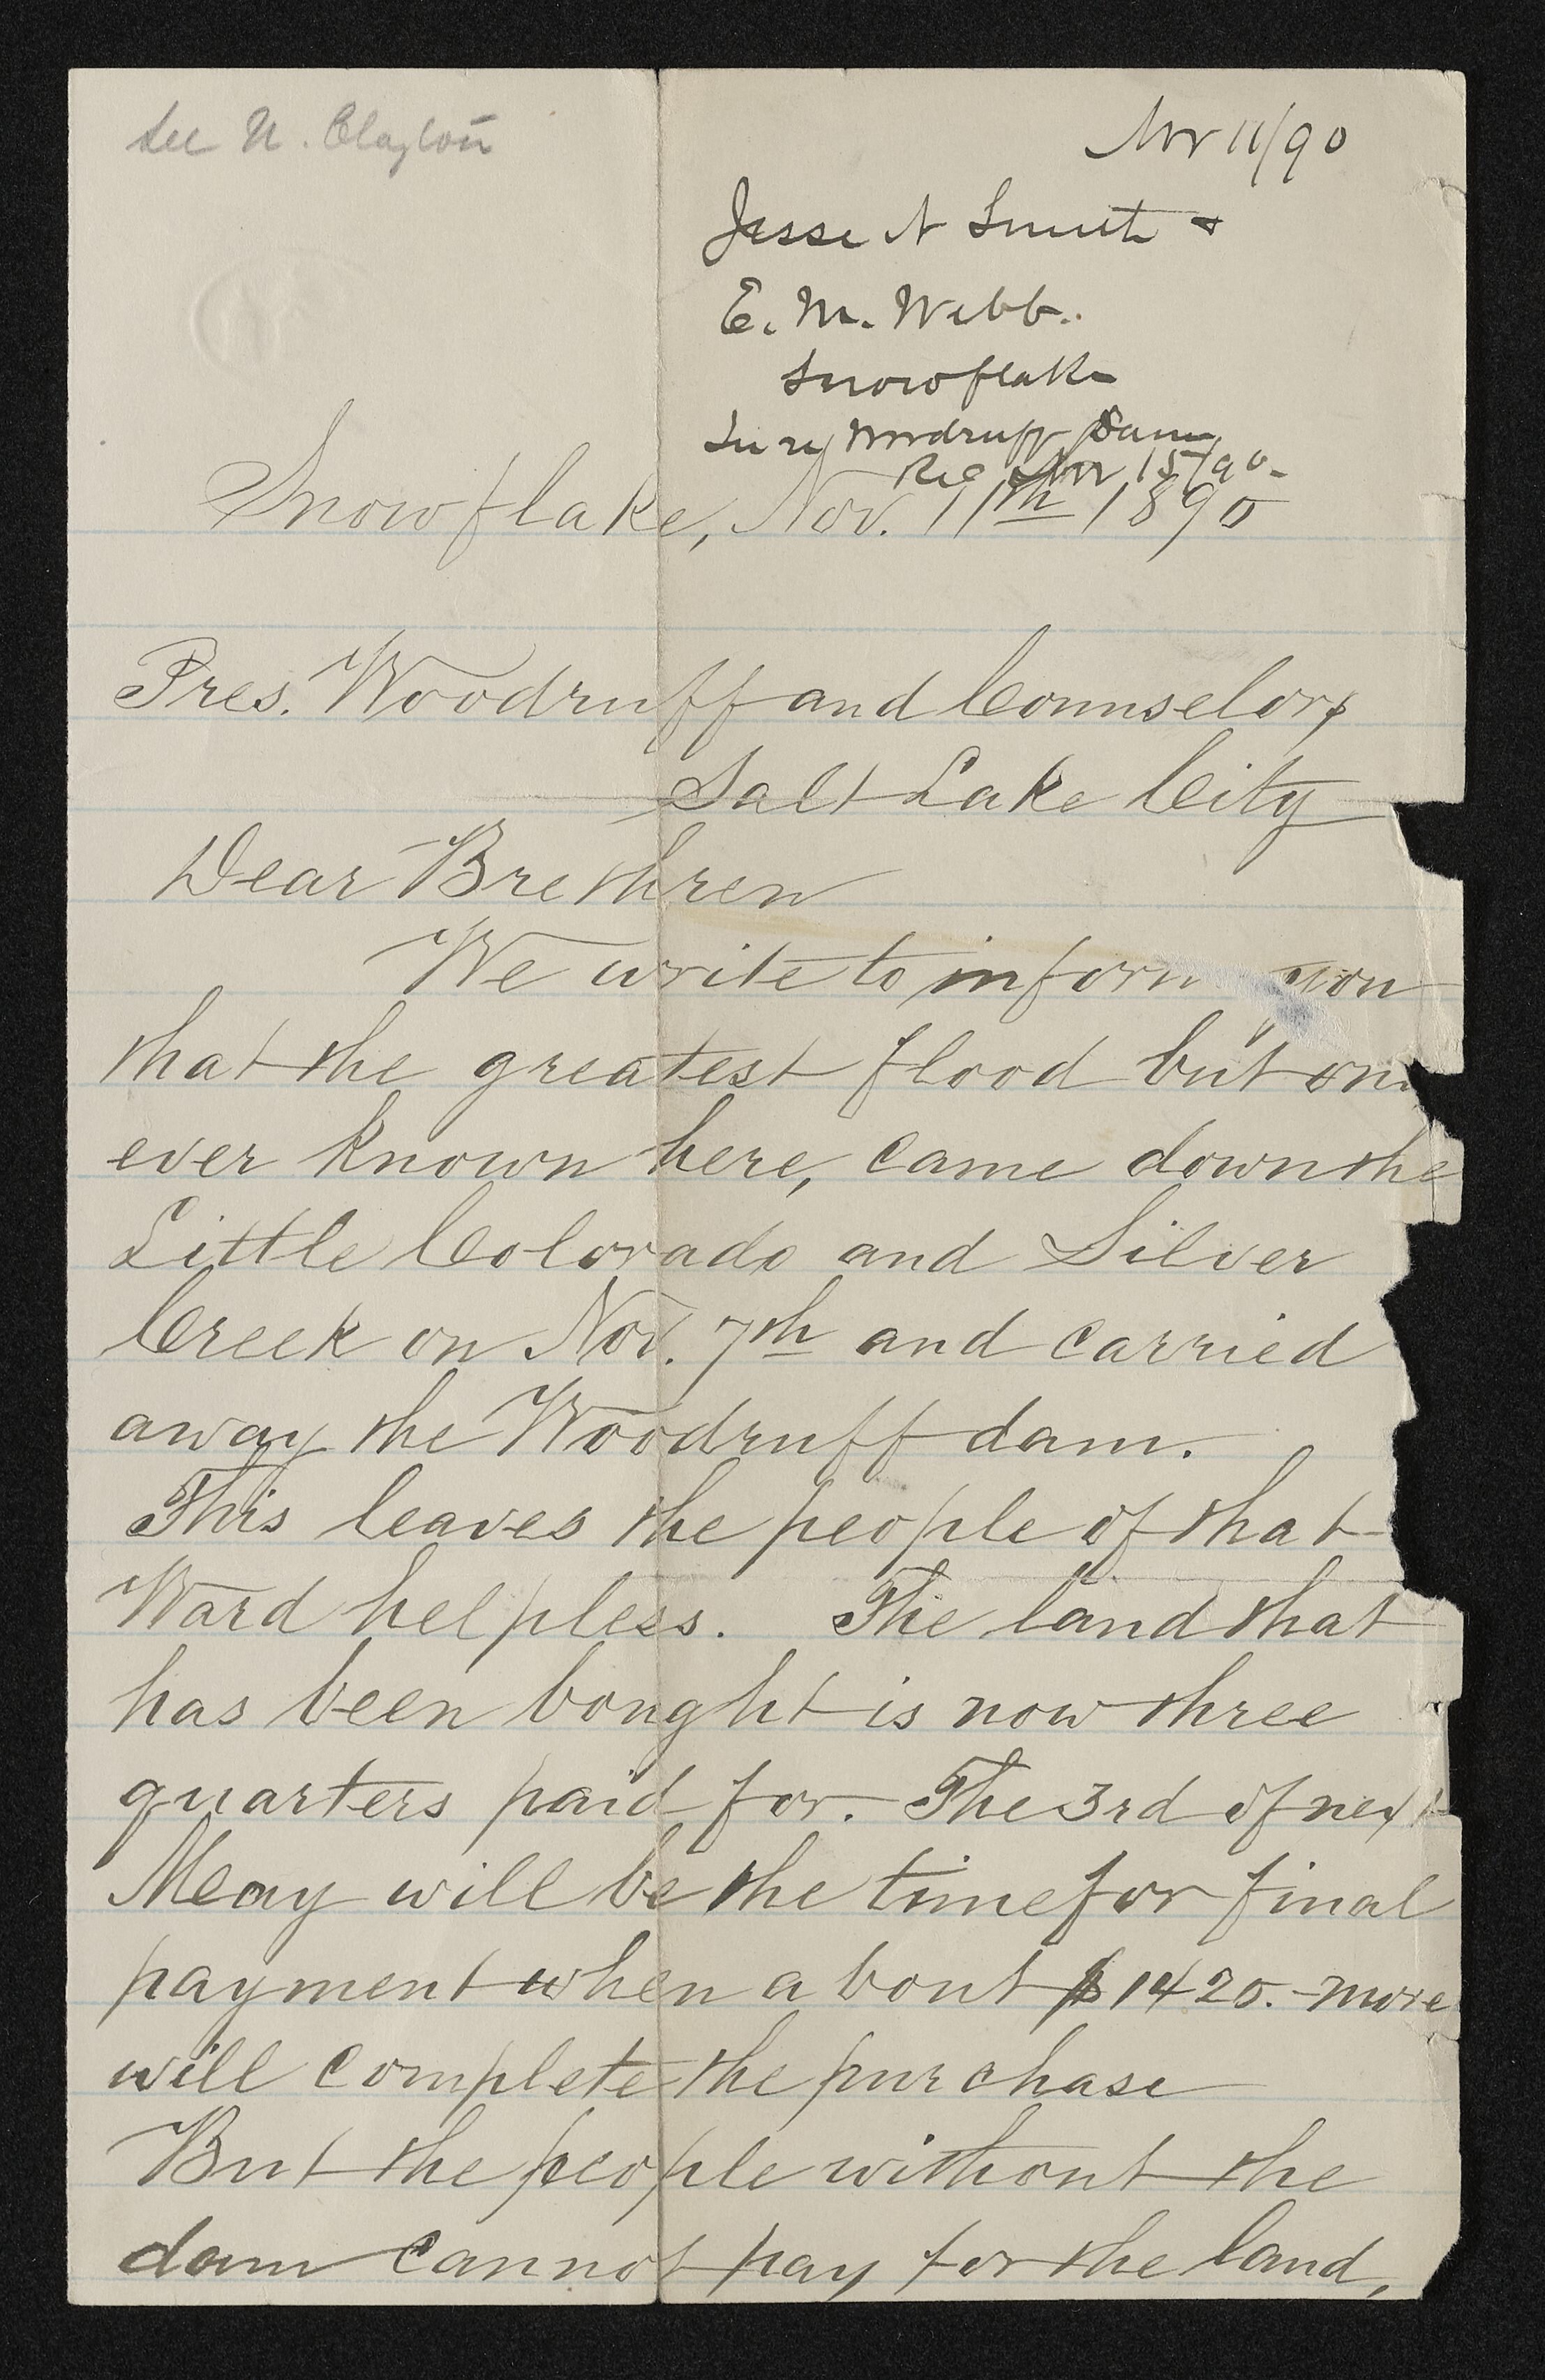 See N. Clayton
Nov 11/90
Jesse N Smith &
E. M. Webb.
Snowflake
In re Woodruff Dam
Rec Nov 15/90-
Snowflake, Nov. 11th 1890
Pres. Woodruff and Counselors
Salt Lake City
Dear Brethren
We write to inform you
that the greatest flood but one
ever known here, came down the
Little Colorado and Silver
Creek on Nov. 7th and carried
away the Woodruff dam.
This leaves the people of that
Ward helpless. The land that
has been bought is now three
quarters paid for. The 3rd of next
May will be the time for final
payment when about $1420. more
will complete the purchase
But the people without the
dam cannot pay for the land,